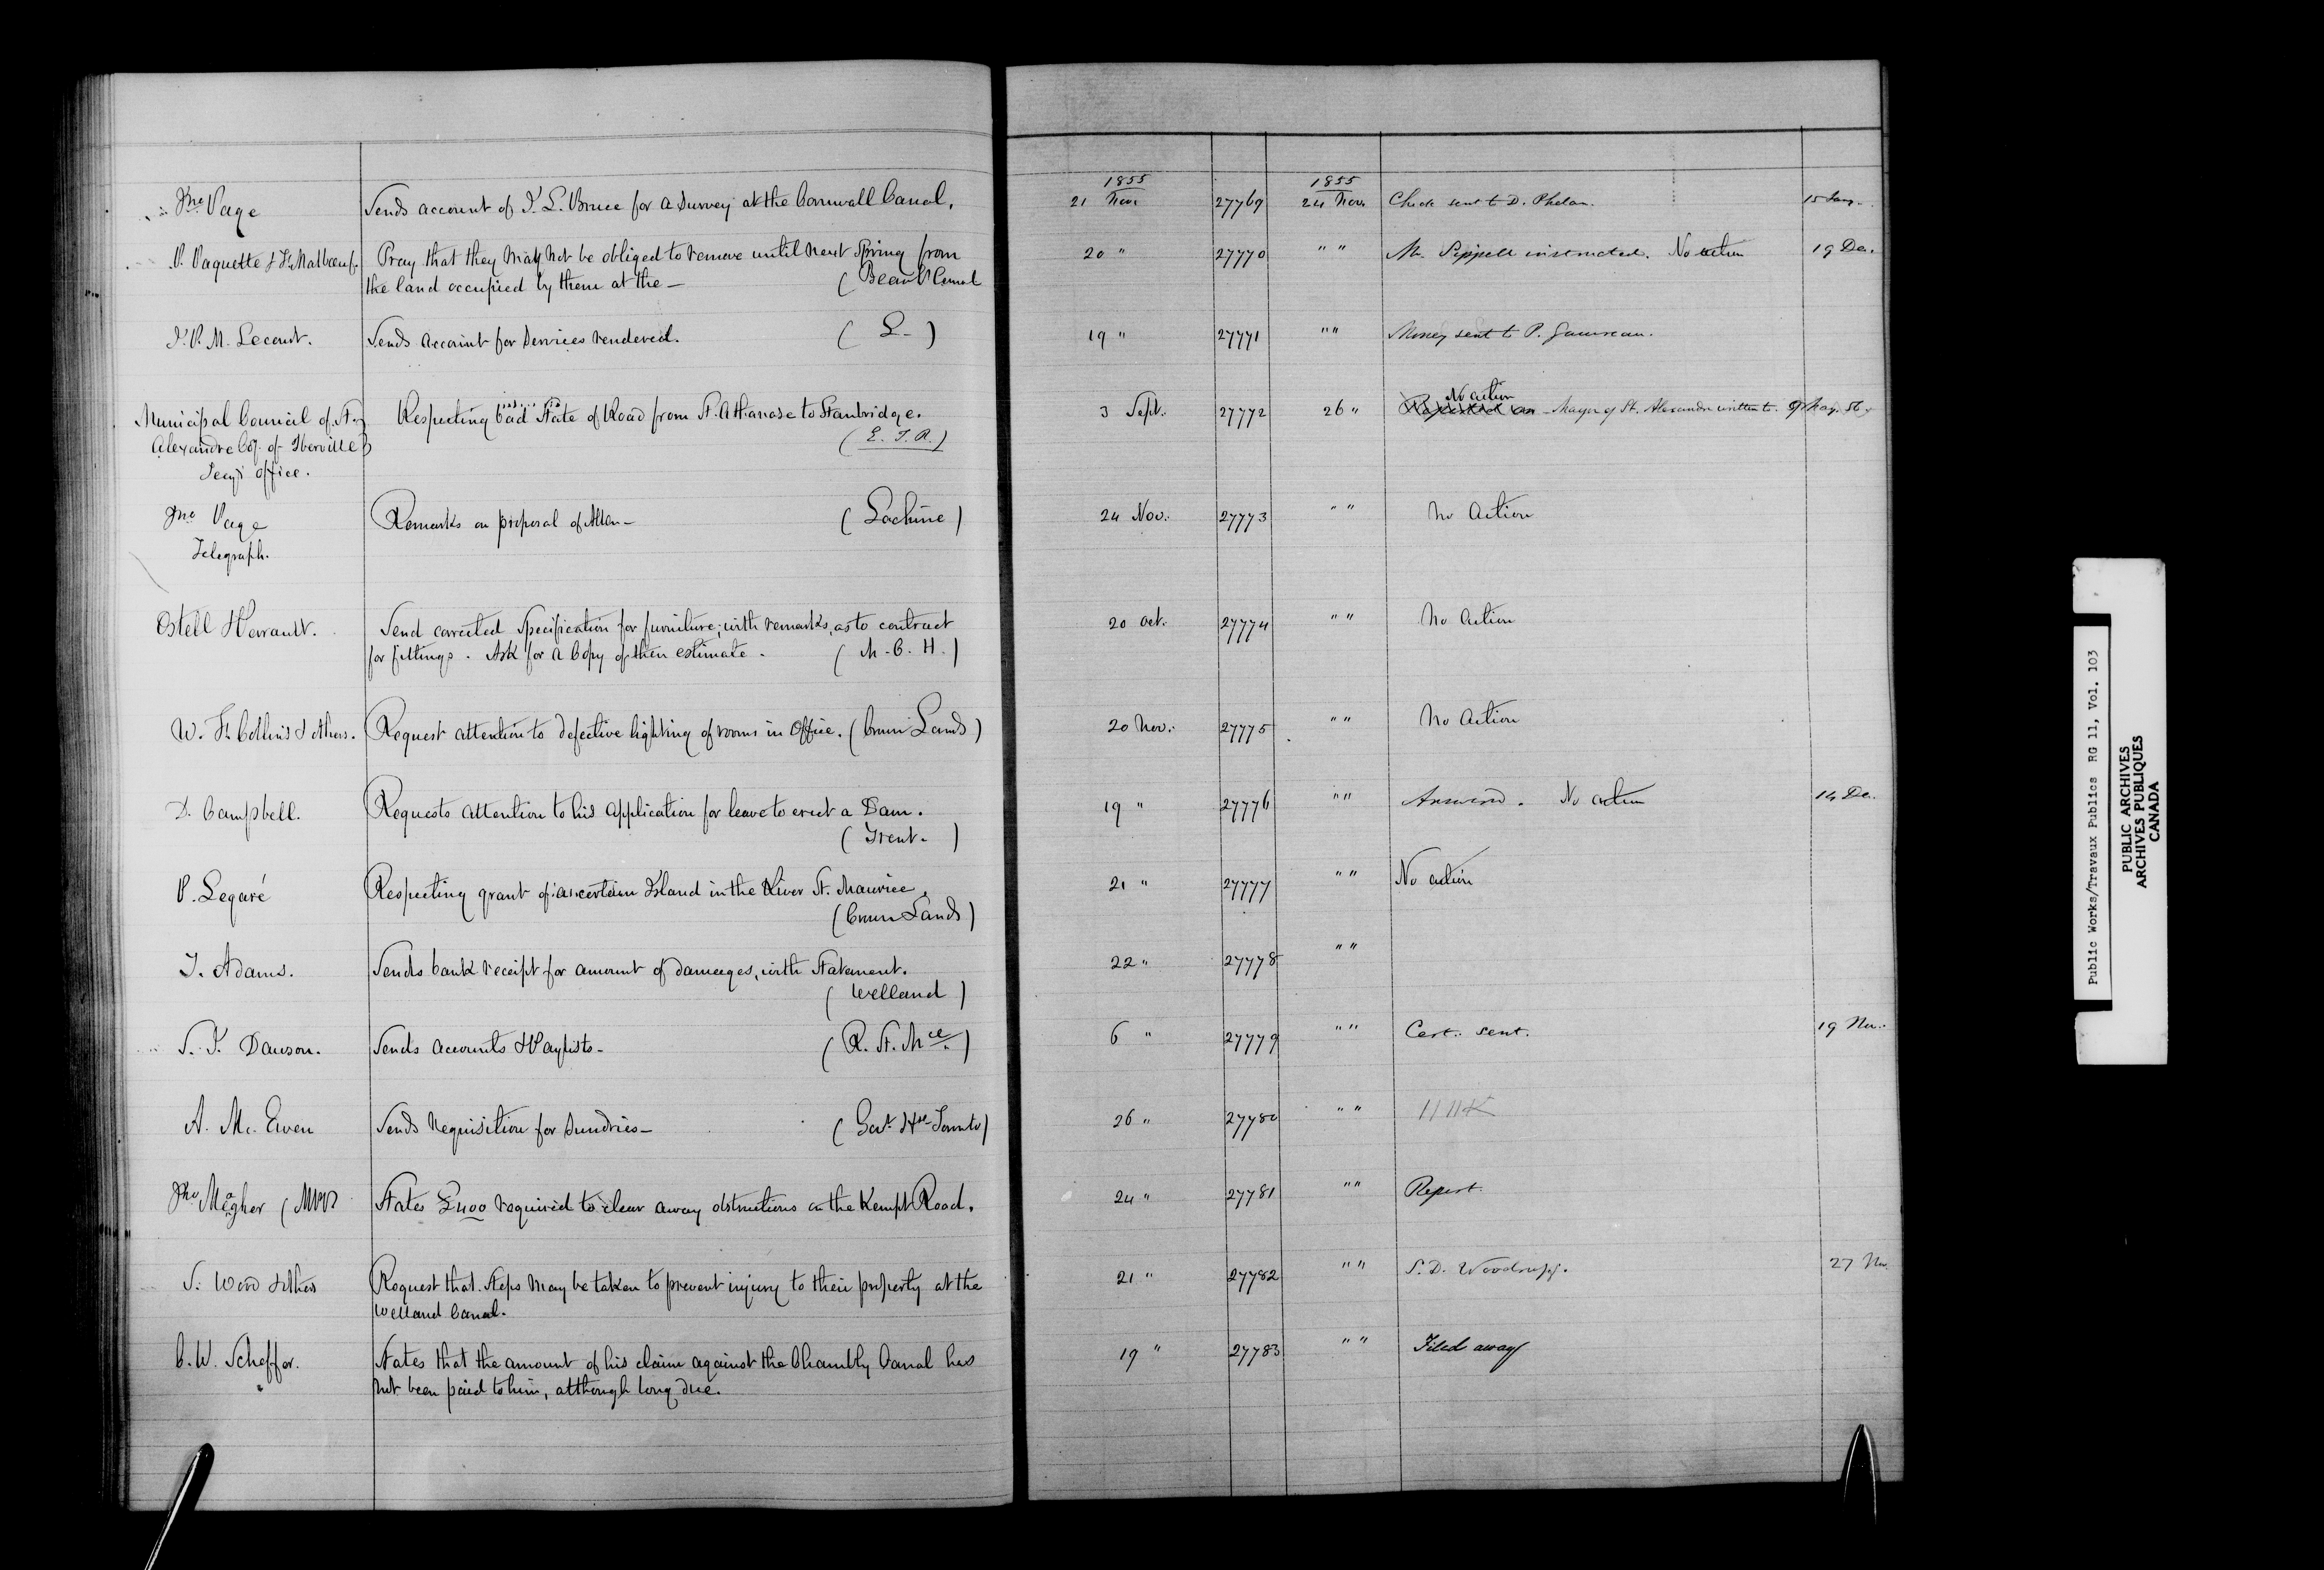 1855 1855
Jno Page Sends account of J. L. Bruce for a Survey at the Cornwall Canal. 21 Nov. 27769 24 Nov. Check sent to D. Phelan. 15 Jany.
P. Paquette & Pray that they may not be obliged to remove until next Spring from 20 " 27770 " " Mr. Sippell instructed. No action 19 De.
the land occupied by them at the — ( Canal
J. P. M. Lecourt. Sends account for Services rendered. ( L- ) 19 " 27771 " " Money sent to P. Gauvreau.
No action
Municipal Council of St. Respecting bad State of Road from St. Athanase to Stanbridge. 3 Sept. 27772 26 " Reported on - Mayor of St. Alexandre written to. 9 May. 56
Alexandre Coy. of Iberville ( E. T. R. )
Secy's office.
Jno Page Remarks on proposal of Allan — ( Lachine ) 24 Nov. 27773 " " No Action
Telegraph.
Ostell & Perrault. Send corrected Specification for furniture; with remarks, as to contract 20 Oct. 27774 " " No Action
for fittings. Ask for a Copy of their estimate. ( M. C. H. )
W. F. Collins & others. Request attention to defective lighting of rooms in Office. ( Crown Lands ) 20 Nov. 27775 " " No Action
D. Campbell. Requests attention to his application for leave to erect a Dam. 19 " 27776 " " Answered. No action 14 De.
( Trent. )
P. Legaré Respecting grant of a certain Island in the River St. Maurice. 21 " 27777 " " No action
( Crown Lands )
T. Adams. Sends bank receipt for amount of damages, with Statement. 22 " 27778 " "
( Welland )
S. J. Dawson. Sends accounts & Paylists — ( R. St. Mce. ) 6 " 27779 " " Cert. sent. 19 Nov.
A. Mc. Ewen Sends Requisition for Sundries — ( Govt. Hse Toronto ) 26 " 27780 " "
Jno Meagher ( MPP States £400 required to clear away obstructions on the Kempt Road. 24 " 27781 " " Report.
S. Wood & others Request that Steps may be taken to prevent injury to their property at the 21 " 27782 " " S. D. Woodruff. 27 Nov.
Welland Canal.
C. W. Scheffer. States that the amount of his claim against the Chambly Canal has 19 " 27783 " " Filed away
not been paid to him, although long due.
Public Works/Travaux Publics RG 11, Vol. 103
PUBLIC ARCHIVES
ARCHIVES PUBLIQUES
CANADA